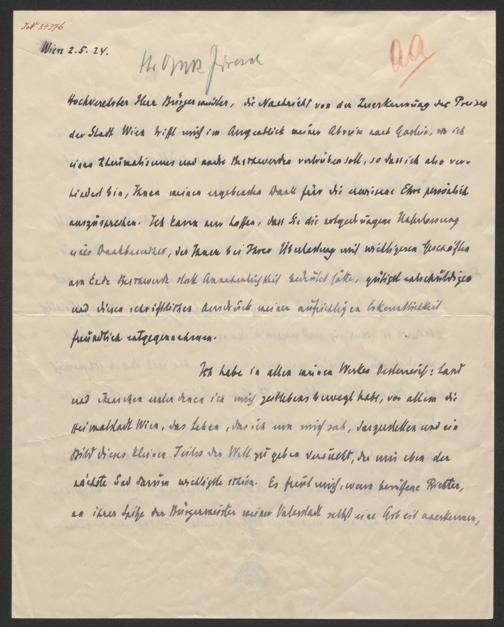 Wien 2.5.24.
aa
Hochverehrter Herr Bürgermeister, die Nachricht von der Zuerkennung des Preises
der Stadt Wien trifft mich im Augenblick meiner Abreise nach Gastein, wo ich
einen Rheumatismus und andre Beschwerden vertreiben soll, so dass ich also ver-
hindert bin, Ihnen meinen ergebensten Dank für die erwiesene Ehre persönlich
auszusprechen. Ich kann nur hoffen, dass Sie die notgedrungene Unterlassung
eines Dankbesuches, der Ihnen bei Ihrer Überlastung mit wichtigeren Geschäften
am Ende Beschwerde statt Annehmlichkeit bedeutet hätte, gütigst entschuldigen
und diesen schriftlichen Ausdruck meiner aufrichtigen Erkenntlichkeit
freundlich entgegennehmen.
Ich habe in allen meinen Werken Oesterreich: Land
und Menschen unter denen ich mich zeitlebens bewegt habe, vor allem die
Heimatstadt Wien, das Leben, das ich um mich sah, darzustellen und ein
Bild dieses kleinen Teiles der Welt zu geben versucht, der mir eben der
nächste und darum wichtigste schien. Es freut mich, wenn berufene Richter,
an ihrer Spitze der Bürgermeister meiner Vaterstadt selbst eine Arbeit anerkennen,